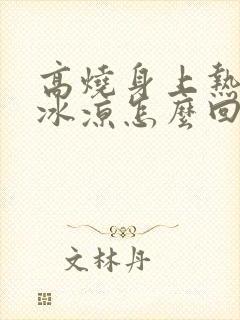 高燒身上熱
冰涼怎麼回
文林丹